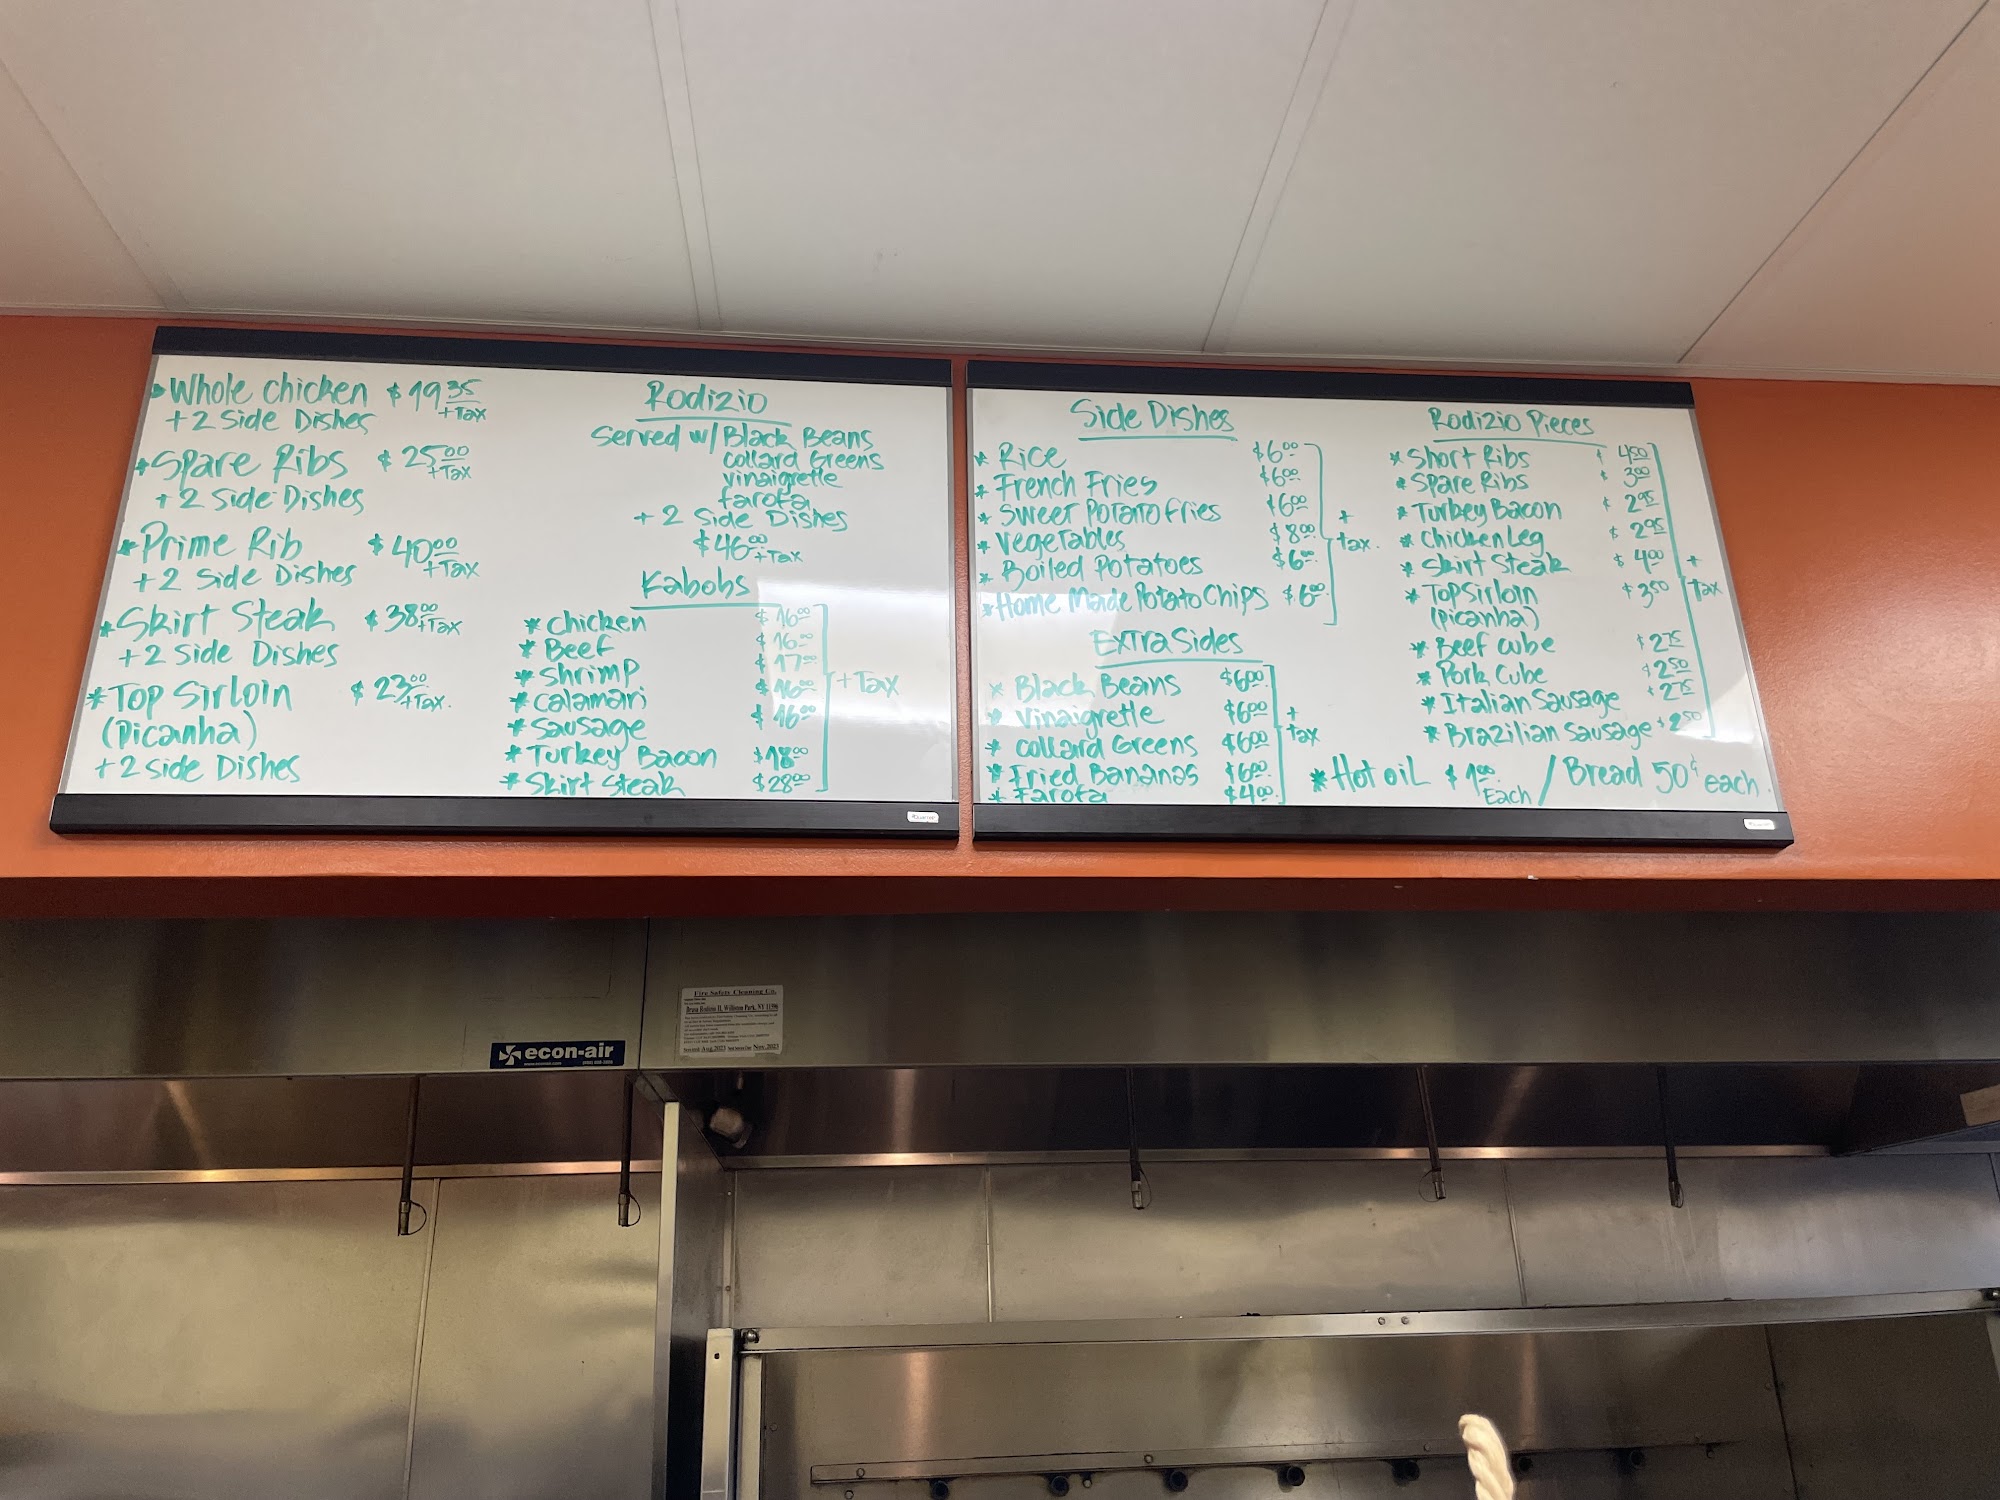 Whole Chicken $19.35 +Tax
+2 Side Dishes
*Spare Ribs $25.00 +Tax
+2 Side Dishes
*Prime Rib $40.00 +Tax
+2 Side Dishes
*Skirt Steak $38.00 +Tax
+2 Side Dishes
*Top Sirloin $23.00 +Tax.
(Picanha)
+2 Side Dishes
Rodizio
Served w/ Black Beans
Collard Greens
Vinaigrette
Farofa
+2 Side Dishes
$46.00 +Tax
Kabobs
*Chicken $16.00
*Beef $16.00
*Shrimp $17.00
*Calamari $16.00
*Sausage $16.00
*Turkey Bacon $18.00
*Skirt Steak $28.00
+Tax
Side Dishes
*Rice $6.00
*French Fries $6.00
*Sweet Potato Fries $6.00
*Vegetables $8.00
*Boiled Potatoes $6.00
*Home Made Potato Chips $6.00
+
tax.
Extra Sides
*Black Beans $6.00
*Vinaigrette $6.00
*Collard Greens $6.00
*Fried Bananas $6.00
*Farofa $4.00
+
tax
Rodizio Pieces
*Short Ribs $4.50
*Spare Ribs $3.00
*Turkey Bacon $2.95
*Chicken Leg $2.95
*Skirt Steak $4.00
*Top Sirloin $3.50
(Picanha)
*Beef Cube $2.75
*Pork Cube $2.50
*Italian Sausage $2.75
*Brazilian Sausage $2.50
+
Tax
*Hot oil $1.00 Each / Bread 50¢ each.
Fire Safety Cleaning Co.
Williston Park, NY 11596
Aug.2023 Nov.2023
econ-air